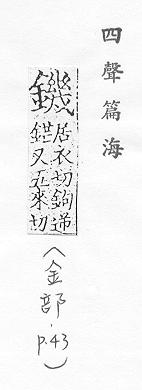 四聲篇海
鐖
居衣切鉤逆
鋩又五來切
（金部，p.43）